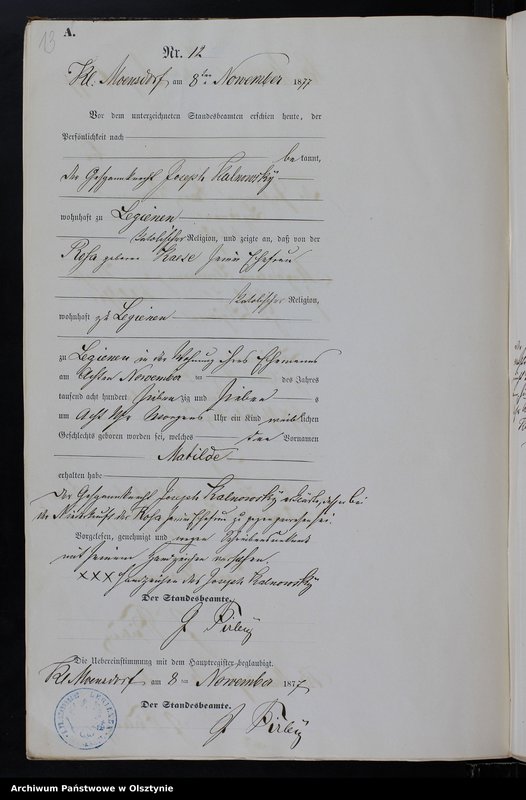 13
A.
Nr. 12
Kl. Moensdorf am 8ten November 1877
Vor dem unterzeichneten Standesbeamten erschien heute, der
Persönlichkeit nach
bekannt,
der Gespannknecht Joseph Kalnowsky
wohnhaft zu Legienen
katholischer Religion, und zeigte an, daß von der
Rosa geborene seiner Ehefrau
katholischer Religion,
wohnhaft zu Legienen
zu Legienen in der Wohnung ihres Ehemannes
am Achten November des Jahres
tausend acht hundert siebenzig und sieben
um Acht Uhr Morgens Uhr ein Kind weiblichen
Geschlechts geboren worden sei, welches den Vornamen
Matilde
erhalten habe
Der Gespannknecht Joseph Kalnowsky erklärte, daß er bei
der Niederkunft der Rosa seiner Ehefrau zugegen gewesen sei.
Vorgelesen, genehmigt und wegen Schreibensunkunde
mit seinem Handzeichen versehen
XXX Handzeichen des Joseph Kalnowsky
Der Standesbeamte.
G Firley
Die Uebereinstimmung mit dem Hauptregister beglaubigt.
Kl. Moensdorf am 8ten November 1877
Der Standesbeamte.
G Firley
Archiwum Państwowe w Olsztynie